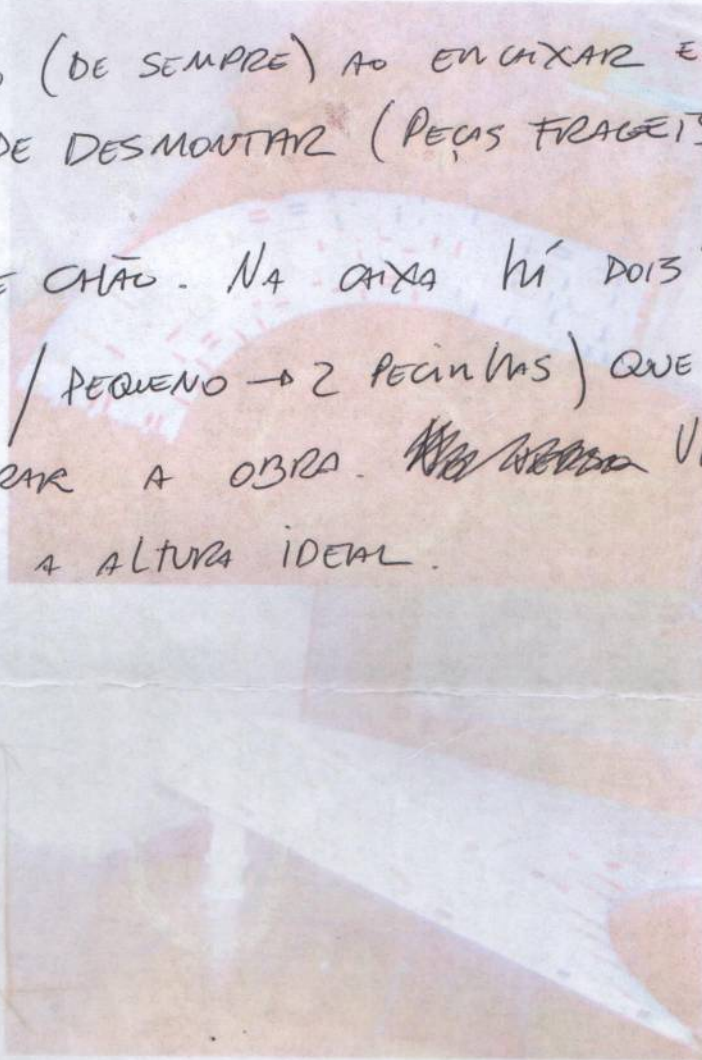 (DE SEMPRE) AO ENCAIXAR E
DE DESMONTAR (PEÇAS FRAGEIS
E CHÃO. NA CAIXA há DOIS
/ PEQUENO → 2 PECINHAS) QUE
RAR A OBRA.
A ALTURA IDEAL.